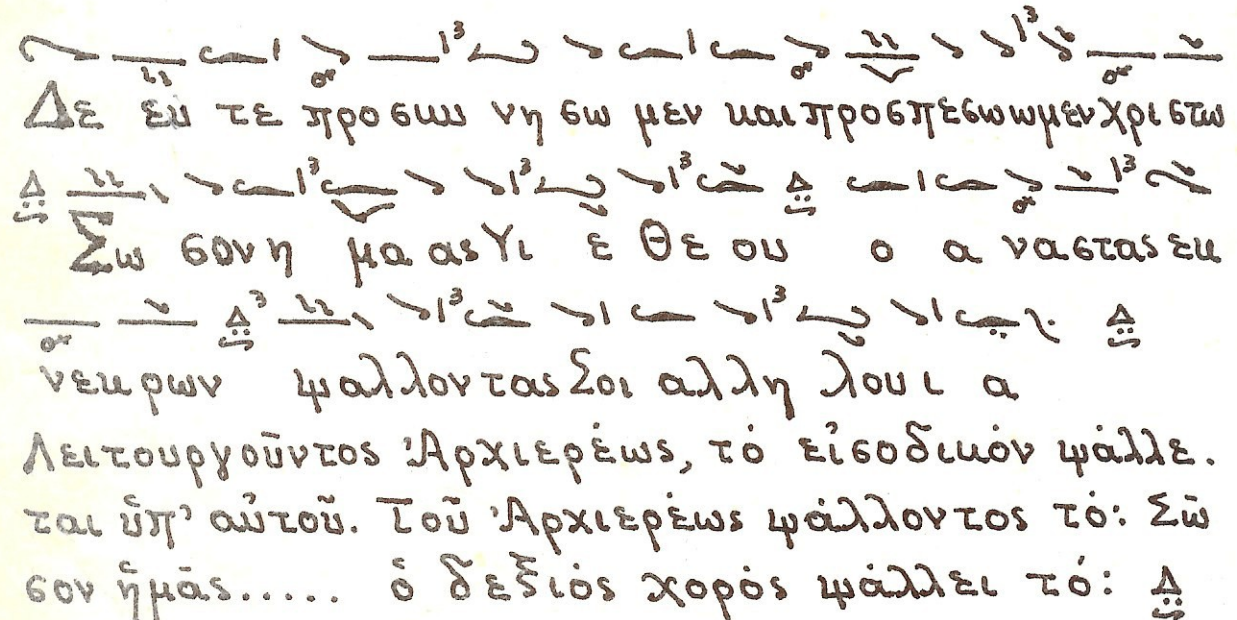 Δε εῦ τε προσκυ νη σω μεν και προσπεσωωμεν Χριστω
Σω σον η μα ας Υι ε Θε ου ο α ναστας εκ
νεκρων ψαλλοντας Σοι αλλη λουι α
Λειτουργοῦντος Ἀρχιερέως, τό εἰσοδικόν ψάλλε.
ται ὑπ' αὐτοῦ. Τοῦ Ἀρχιερέως ψάλλοντος τό: Σῶ
σον ἡμᾶς..... ὁ δεξιός χορός ψάλλει τό: Δ